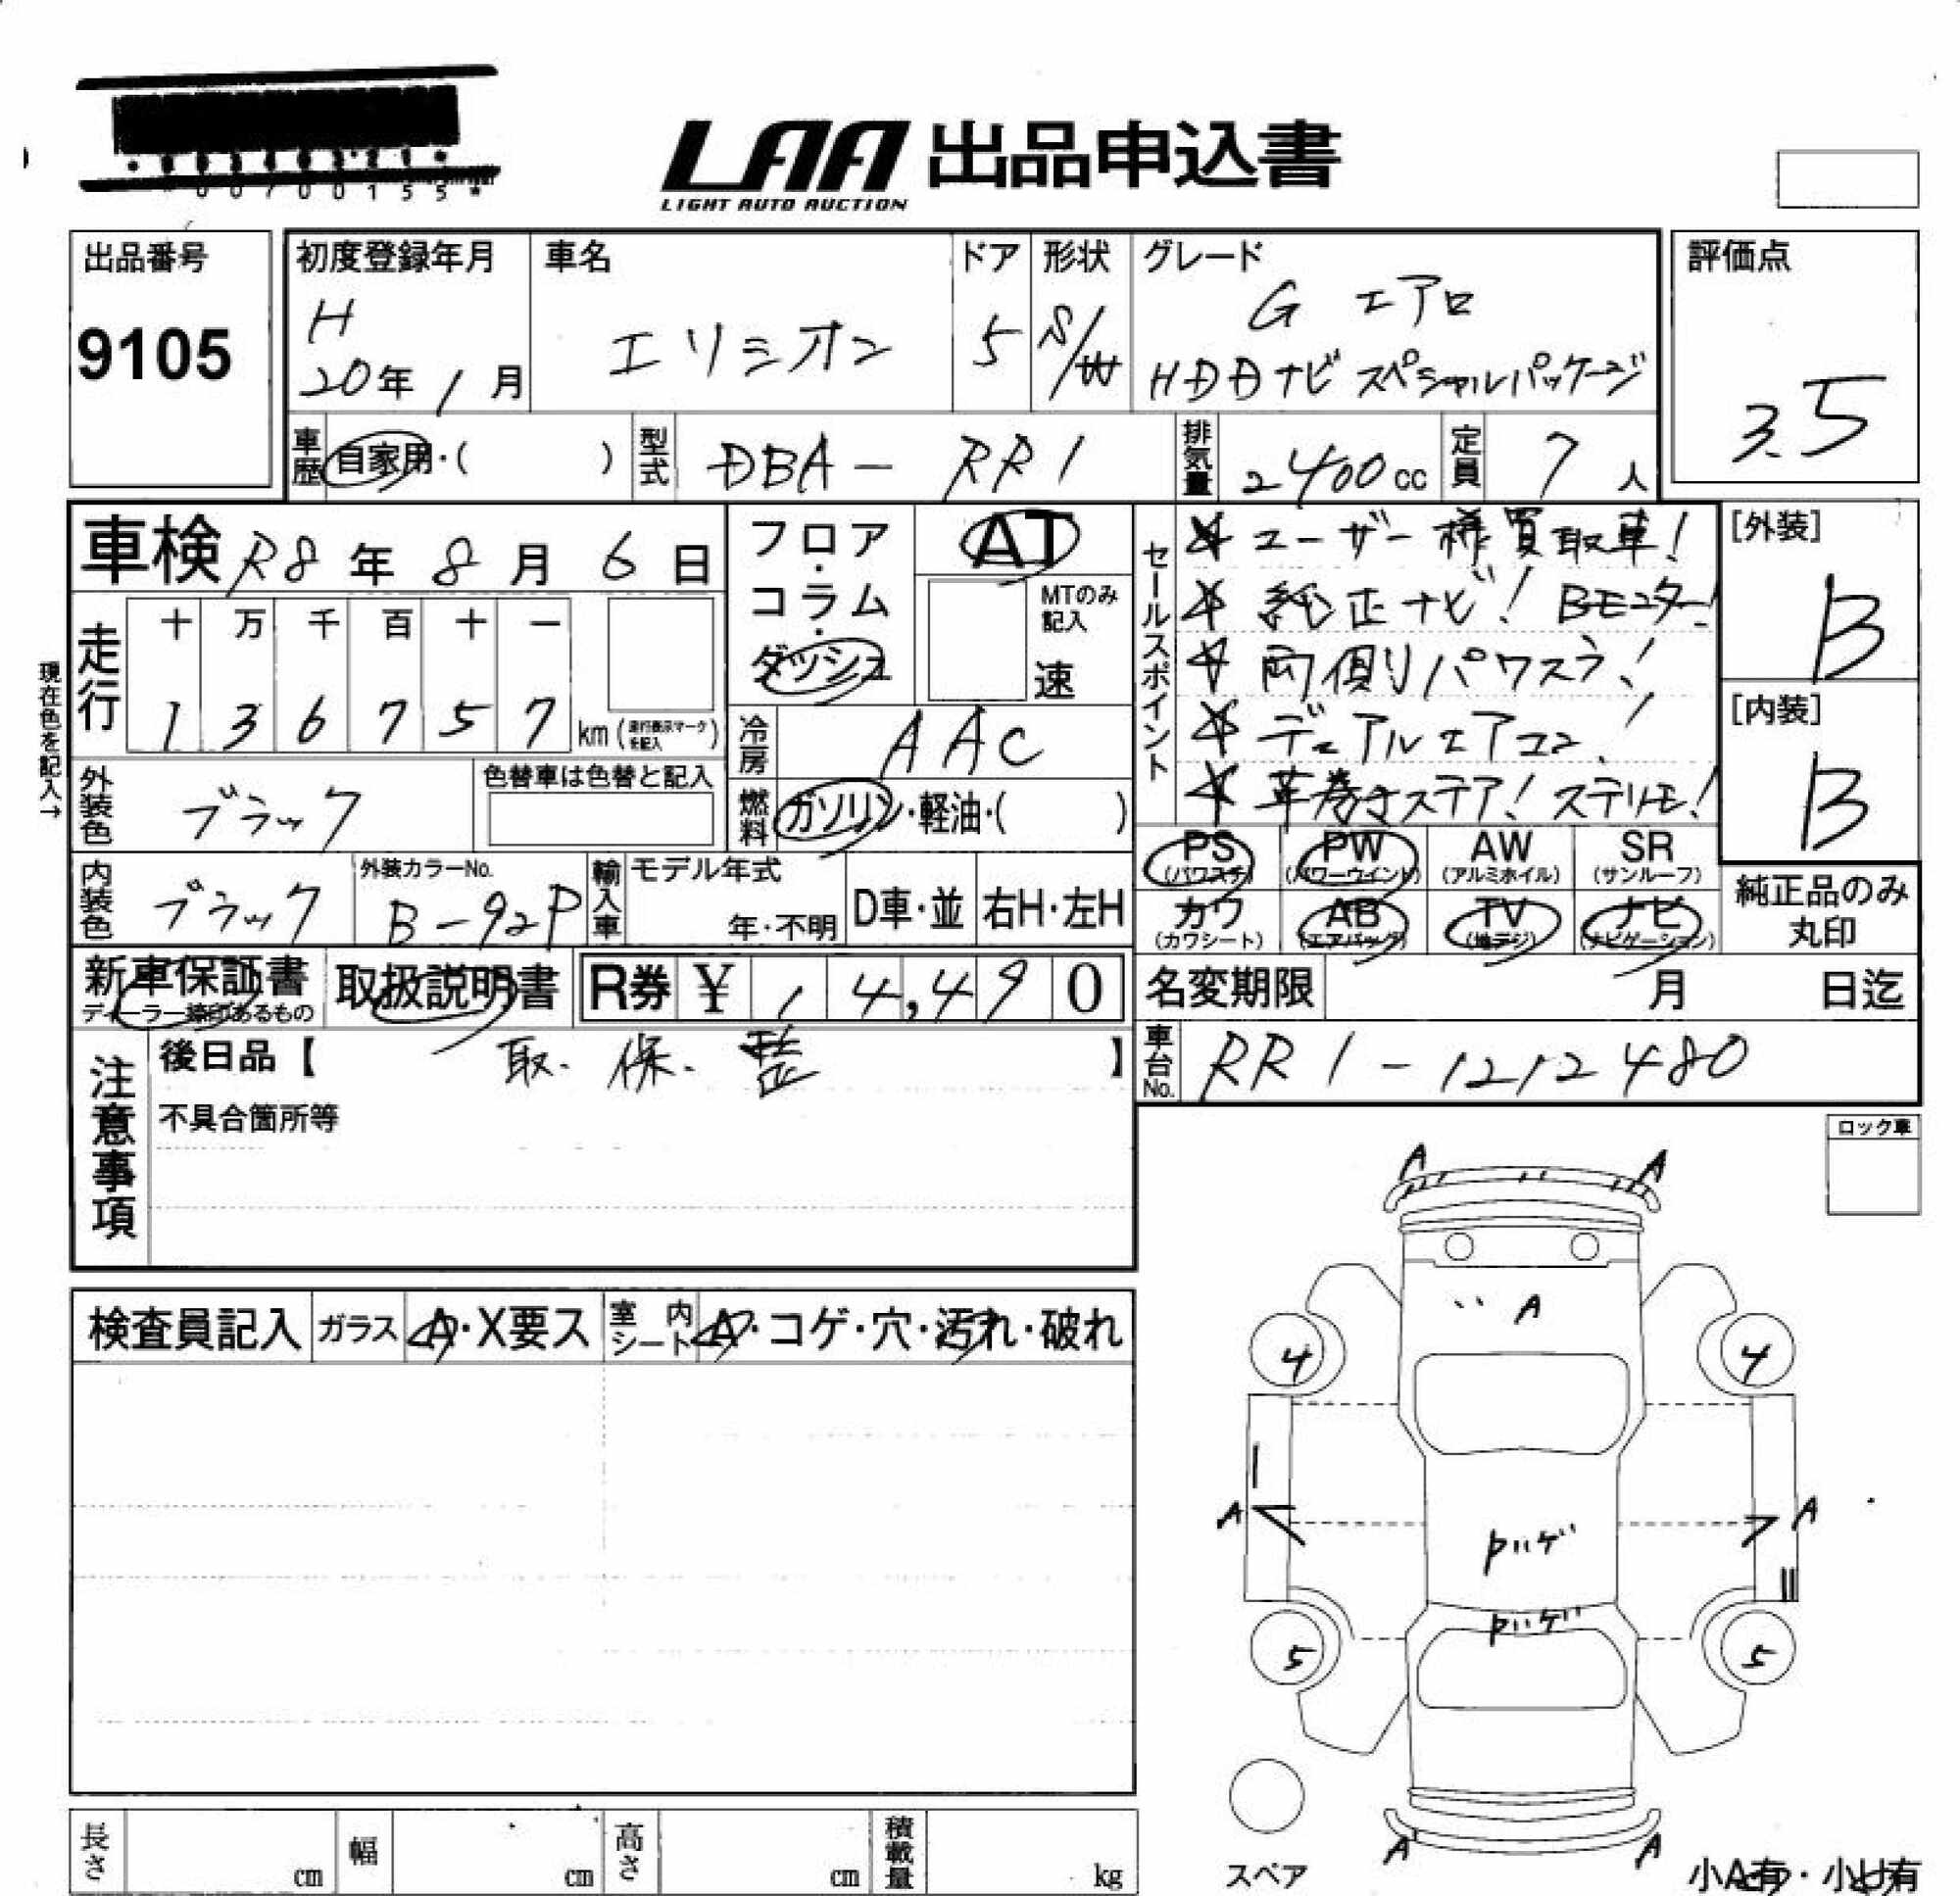 00700155*
LAA 出品申込書
LIGHT AUTO AUCTION
出品番号
9105
初度登録年月
H
20年 1月
車名
エリシオン
ドア
5
形状
S/W
グレード
G エアロ
HDDナビ スペシャルパッケージ
評価点
3.5
車歴 自家用・( )
型式 DBA-RR1
排気量 2400cc
定員 7人
車検 R8年 8月 6日
フロア・コラム・ダッシュ
AT
MTのみ記入
速
走行
十 万 千 百 十 一
1 3 6 7 5 7 km (走行表示マークを記入)
現在色を記入→
冷房 AAC
燃料 ガソリン・軽油・( )
外装色 ブラック
色替車は色替と記入
内装色 ブラック
外装カラーNo.
B-92P
輸入車
モデル年式
年・不明
D車・並
右H・左H
セールスポイント
☆ユーザー様買取車!
☆純正ナビ! Bモニター!
☆両側パワスラ!
☆デュアルエアコン!
☆革巻きステア! ステリモ!
[外装]
B
[内装]
B
PS (パワステ)
PW (パワーウインド)
AW (アルミホイル)
SR (サンルーフ)
カワ (カワシート)
AB (エアバッグ)
TV (地デジ)
ナビ (ナビゲーション)
純正品のみ丸印
新車保証書
ディーラー捺印あるもの
取扱説明書
R券 ¥ 14,490
名変期限 月 日迄
車台No. RR1-1212480
注意事項
後日品【 取.保. 】
不具合箇所等
ロック車
検査員記入
ガラス A・X要ス
室内シート A・コゲ・穴・汚れ・破れ
A A
A
4 4
A A
ハゲ
ハゲ
5 5
A A
スペア
小A有・小U有
長さ cm
幅 cm
高さ cm
積載量 kg